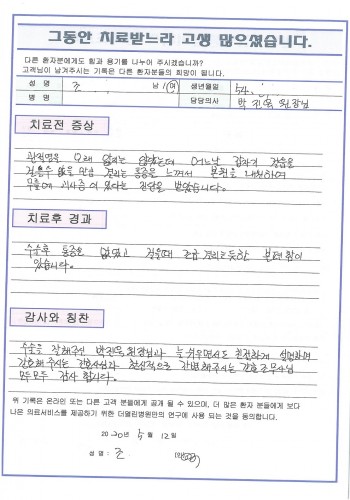 그동안 치료받느라 고생 많으셨습니다.
다른 환자분에게도 힘과 용기를 나누어 주시겠습니까?
고객님이 남겨주시는 기록은 다른 환자분들의 희망이 됩니다.
성 명 조 남 / 여 생년월일 54.
병 명 담당의사 박진욱 원장님
치료전 증상
관절염을 오래 앓지는 않았는데 어느날 갑자기 걸음을
걸을수 없을 만큼 통증을 느껴서 본원을 내원하여
무릎에 괴사증이 있다는 진단을 받았습니다.
치료후 경과
수술후 통증은 없었고 걸을때 조금 불편함이
있습니다.
감사와 칭찬
수술을 잘해주신 박진욱 원장님과 늘 친절하게 설명하며
간호해 주시는 간호사님과 헌신적으로 간병해주시는 간호조무사님
모두모두 감사 합니다.
위 기록은 온라인 또는 다른 고객 분들에게 공개 될 수 있으며, 더 많은 환자 분들에게 보다
나은 의료서비스를 제공하기 위한 더열린병원만의 연구에 사용 되는 것을 동의합니다.
2020년 5월 12일
성 명 : 조